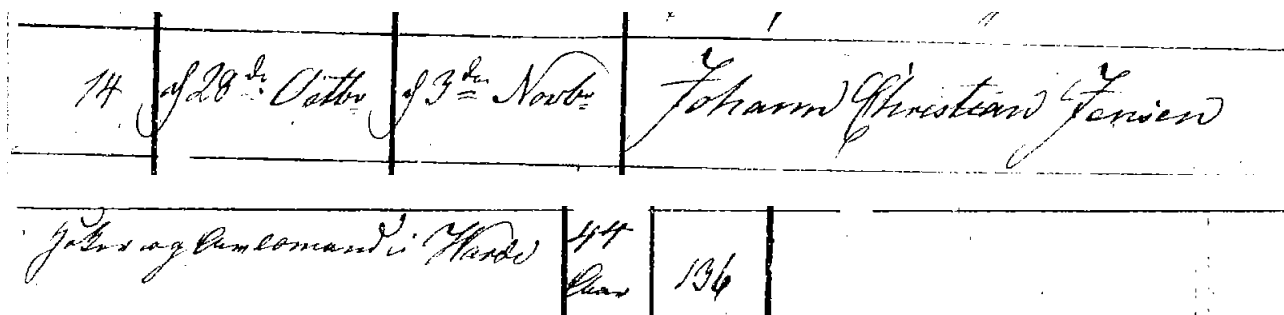 14 d 28de Octbr d 3die Novbr Johann Christian Jensen
Høker og Avlsmand i Warde 44
Aar 136